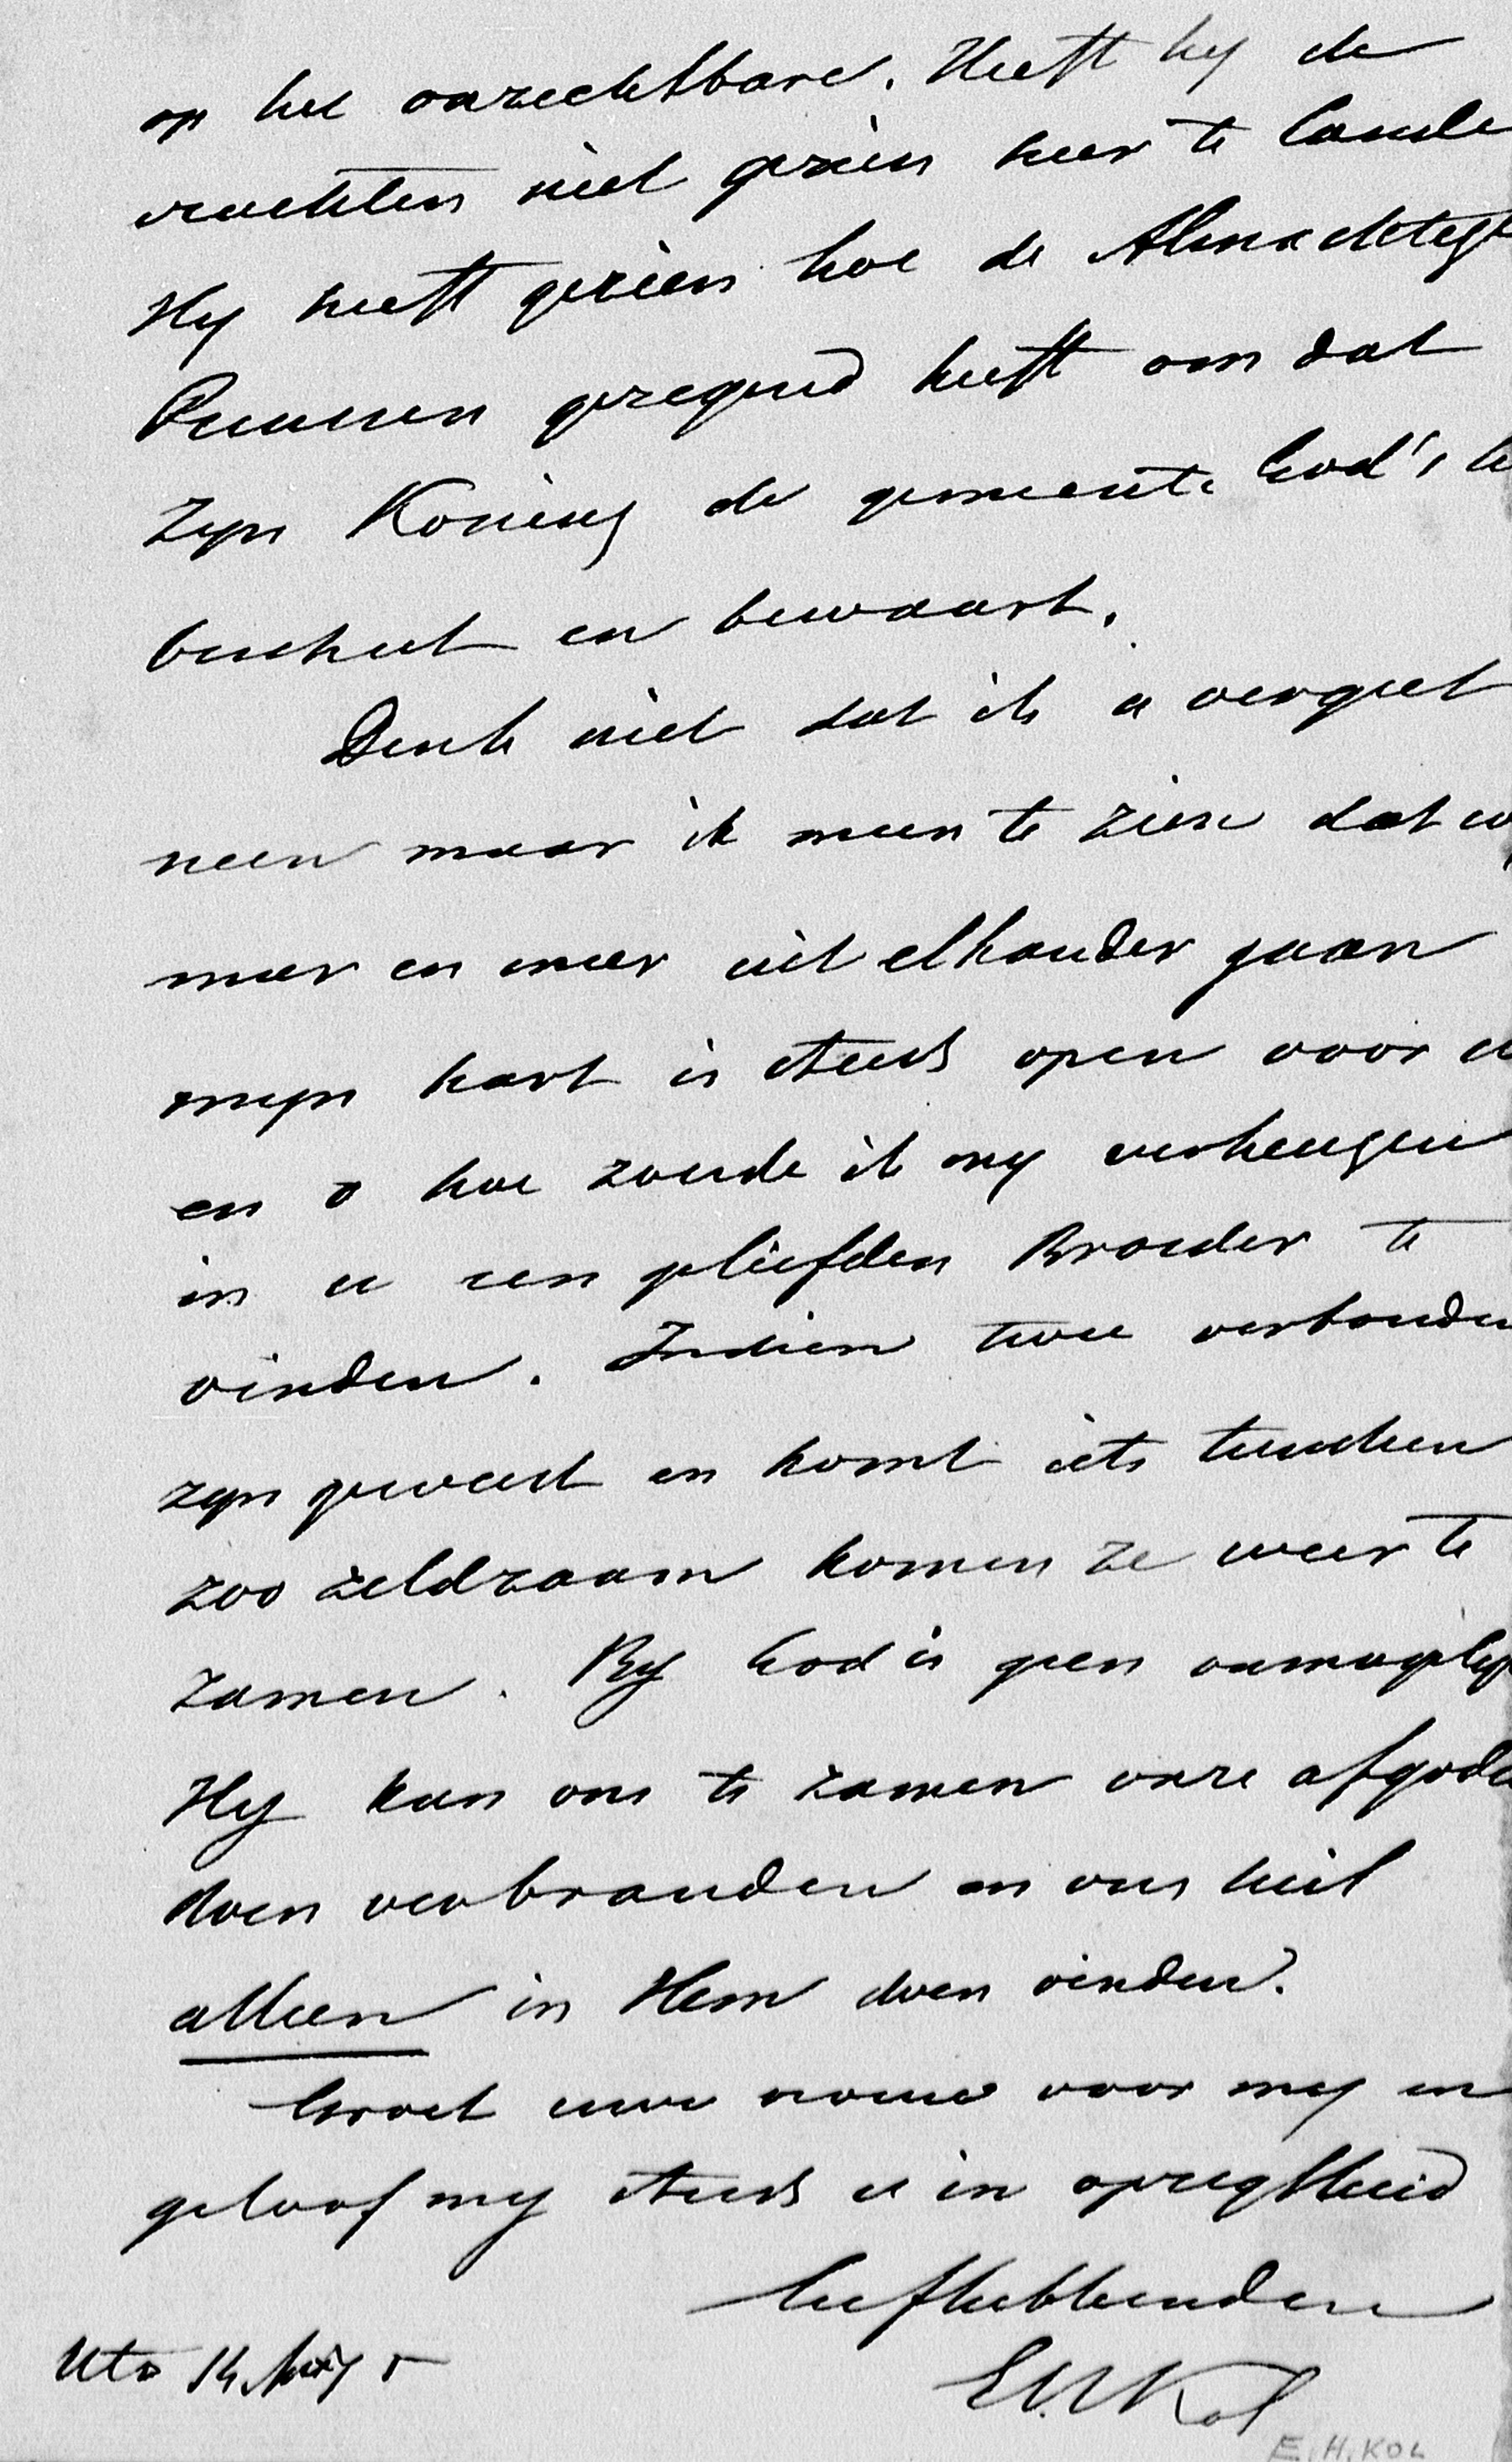 op het onzichtbare. Heeft hy de
vruchten niet gezien hier te lande
Hy heeft gezien hoe de Almachtige
Pruissen gezegend heeft om dat
zyn Koning de gemeente God's
beschut en bewaart.
Denk niet dat ik u vergeet
neen maar ik meen te zien dat w
meer en meer uit elkander gaan
myn hart is steeds open voor u
en o hoe zoude ik my verheugen
in u een geliefden Broeder te
vinden. Indien twee verbonden
zyn geweest en komt iets tusschen
zoo zeldzaam komen ze weer te
zamen. By God is geen onmogelyk
Hy kan ons te zamen onze afgode
doen verbranden en ons heil
alleen in Hem doen vinden.
Groet uwe vrouw voor my en
geloof my steeds u in opregtheid
liefhebbenden
Utr 14
EHKol
E.H.KOL